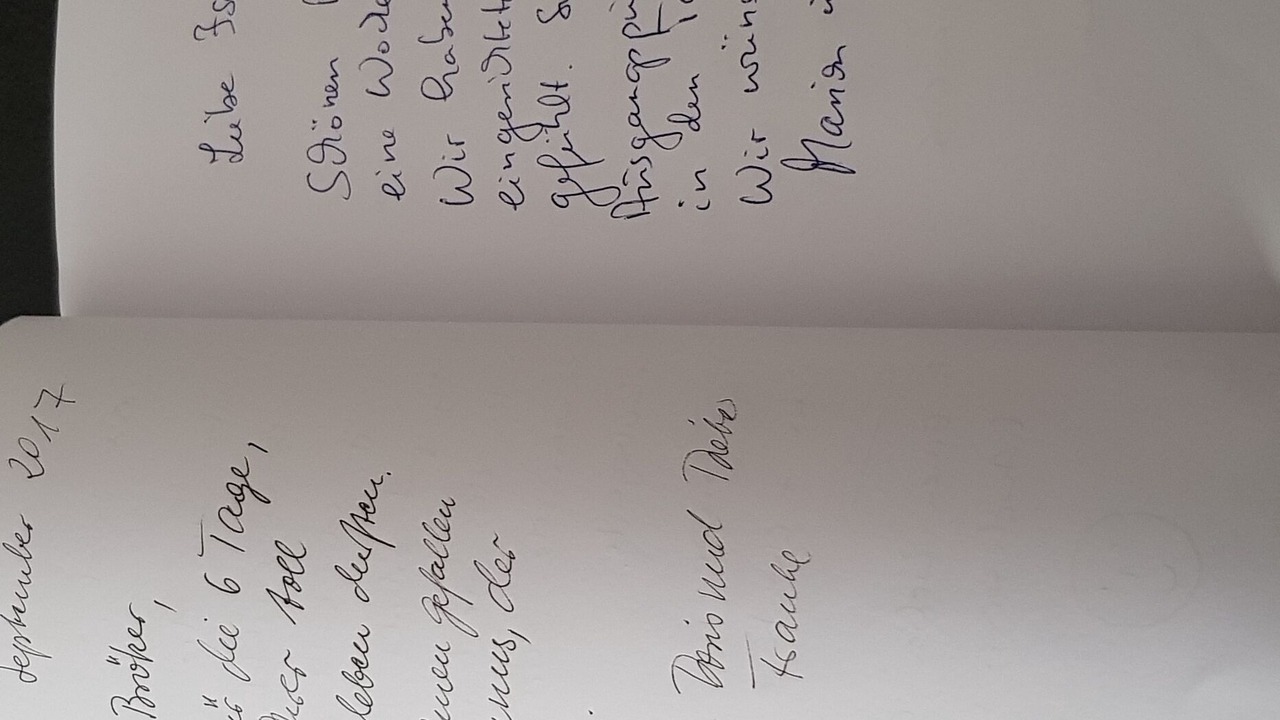 September 2017
Bröker,
die 6 Tage,
toll
leben durften.
gefallen
, der
Doris und Dieter
Franke
Liebe Is
Schönen
eine Woche
Wir haben
eingerichtet
gefühlt. S
Ausgangspu
in den
Wir wüns
Marion u